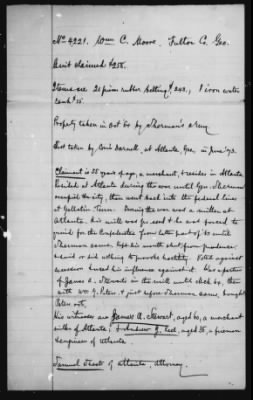 No 4221. Wm C. Moore. Fulton Co. Geo.
Amt claimed $258.
Items are 21 pieces rubber belting $243., 1 iron water
tank $15.
Property taken in Oct 64 by Sherman's army.
Test. taken by Com'r Darnell, at Atlanta, Geo. in June '73.
Claimant is 55 years of age, a merchant, & resides in Atlanta
Resided at Atlanta during the war until Gen Sherman
occupied the city, then went back into the federal lines
at Gallatin Tenn. During the war was a miller at
Atlanta, his mill was pressed & he was forced to
grind for the Confederates from latter part of 63 until
Sherman came. Kept his mouth shut from prudence
said or did nothing to provoke hostility. Voted against
secession & used his influence against it. Was a partner
of James A. Stewart in the mill until of 64, then
with Wm G. Peters & just before Sherman came, bought
Peters out.
His witnesses are James A. Stewart, aged 60, a merchant
miller of Atlanta; & Andrew J. , aged 35, a
of Atlanta.
of Atlanta, attorney.